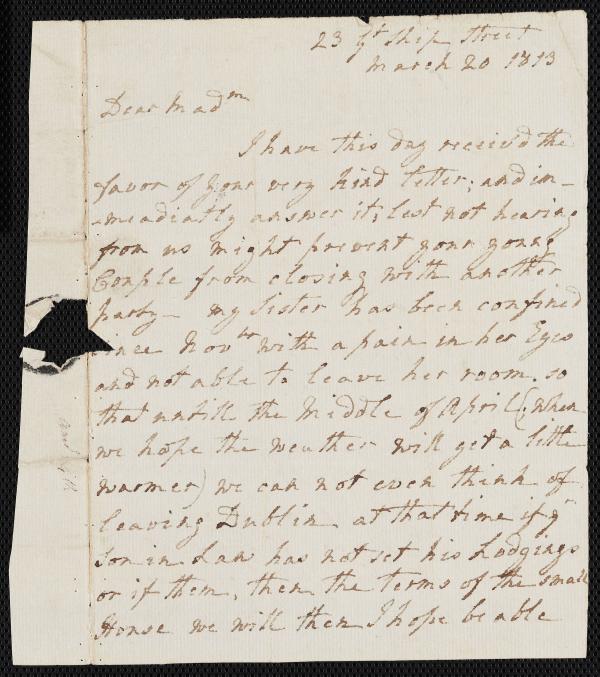 23 Gt Ship Street
March 20 1813
Dear Madm
I have this day receivd the
favor of your very kind letter; and im-
-meadiatly answer it; lest not hearing
from us might prevent your young
Couple from closing with another
party - my Sister has been confined
since Novbr with a pain in her Eyes
and not able to leave her room so
that untill the Middle of April (when
we hope the weather will get a little
warmer) we can not even think of
leaving Dublin at that time if yr
Son in Law has not set his Lodgings
or if them, then the terms of the small
House we will then I hope be able